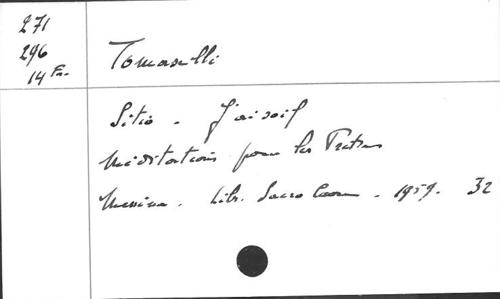 271
296
14 Fr.
Tomaselli
Sitio - J'ai soif
Méditations pour les Prêtres
Messina. Libr. Sacro Cuore - 1959. 32